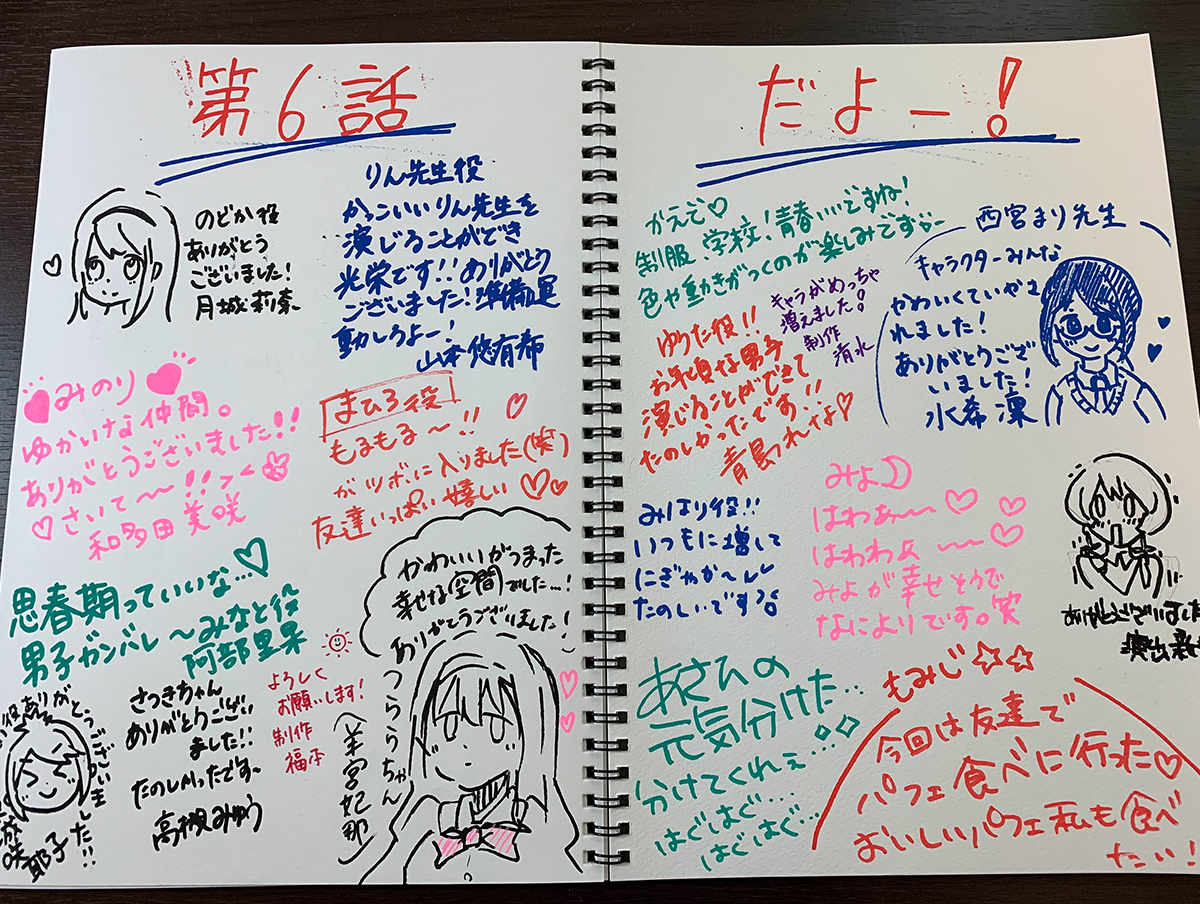 第6話
のどか役
ありがとう
ございました!
月城莉奈
りん先生役
かっこいいりん先生を
演じることができ
光栄です!!ありがとう
ございました!準備運
動しろよー!
山本悠有希
みのり
ゆかいな仲間。
ありがとうございました!!
さいて〜〜!!><
和多田美咲
まひろ役
もるもる〜!!
がツボに入りました(笑)
友達いっぱい嬉しい
思春期っていいな…
男子ガンバレ 〜みなと役
阿部里果
かわいいがつまった
幸せな空間でした…!
ありがとうございました!
つららちゃん
羊宮妃那
役ありがとうございました!!
耶子
さつきちゃん
ありがとうござい
ました!!
たのしかったです〜
高槻みゆう
よろしく
お願いします!
制作
福本
だよー!
かえで
制服、学校!青春いいですね!
色や動きがつくのが楽しみです
キャラがめっちゃ
増えました!
制作
清水
西宮まり先生
キャラクターみんな
かわいくていやさ
れました!
ありがとうござ
いました!
水希凜
ゆうた役!!
お年頃な男子
演じることができて
たのしかったです!!
青島れな
みほり役!!
いつもに増して
にぎやか〜で
たのしいです
みよ
はわぁ〜〜
はわわぁ〜〜
みよが幸せそうで
なによりです。笑
ありがとうございました
演出
あさひの
元気分けた…
分けてくれぇ…
はぐはぐ…
はぐはぐ…
もみじ☆☆
今回は友達で
パフェ食べに行った
おいしいパフェ私も食べ
たい!